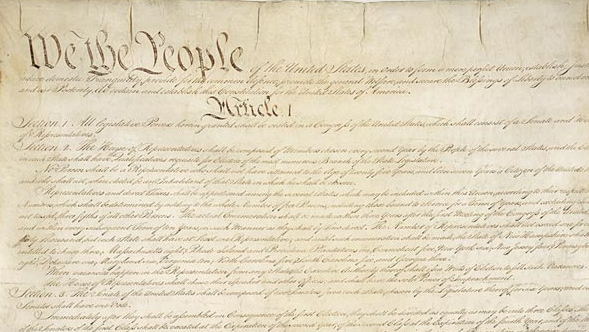 We the People of the United States, in Order to form a more perfect Union, establish Justice,
insure domestic Tranquility, provide for the common defence, promote the general Welfare, and secure the Blessings of Liberty to ourselves
and our Posterity, do ordain and establish this Constitution for the United States of America.
Article. I.
Section. 1. All legislative Powers herein granted shall be vested in a Congress of the United States, which shall consist of a Senate and House
of Representatives.
Section. 2. The House of Representatives shall be composed of Members chosen every second Year by the People of the several States, and the
in each State shall have Qualifications requisite for Electors of the most numerous Branch of the State Legislature.
No Person shall be a Representative who shall not have attained to the Age of twenty five Years, and been seven Years a Citizen of the United
and who shall not, when elected, be an Inhabitant of that State in which he shall be chosen.
Representatives and direct Taxes shall be apportioned among the several States which may be included within this Union, according to their respective
Numbers, which shall be determined by adding to the whole Number of free Persons, including those bound to Service for a Term of Years, and excluding Indians
not taxed, three fifths of all other Persons. The actual Enumeration shall be made within three Years after the first Meeting of the Congress of the United
and within every subsequent Term of ten Years, in such Manner as they shall by Law direct. The Number of Representatives shall not exceed one for every
thirty Thousand, but each State shall have at Least one Representative; and until such enumeration shall be made, the State of New Hampshire shall be
entitled to chuse three, Massachusetts eight, Rhode Island and Providence Plantations one, Connecticut five, New York six, New Jersey four, Pennsylvania
eight, Delaware one, Maryland six, Virginia ten, North Carolina five, South Carolina five, and Georgia three.
When vacancies happen in the Representation from any State, the Executive Authority thereof shall issue Writs of Election to fill such Vacancies.
The House of Representatives shall chuse their Speaker and other Officers; and shall have the sole Power of Impeachment.
Section. 3. The Senate of the United States shall be composed of two Senators from each State, chosen by the Legislature thereof, for six Years; and each
Senator shall have one Vote.
Immediately after they shall be assembled in Consequence of the first Election, they shall be divided as equally as may be into three Classes.
of the Senators of the first Class shall be vacated at the Expiration of the second Year, of the second Class at the Expiration of the fourth Year, and of the